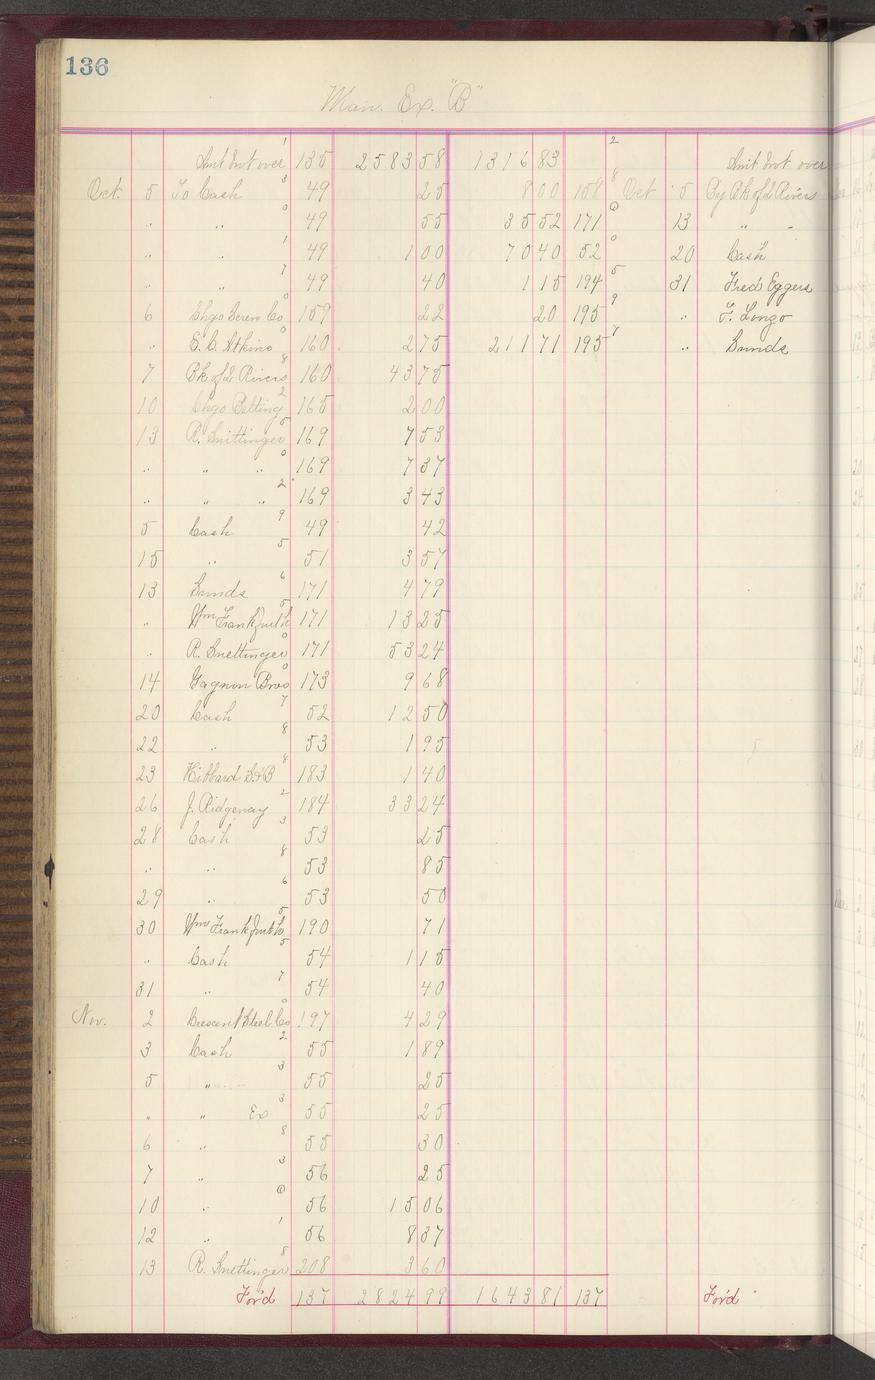 136
Man. Ex. "B"
Amt brot over 1 135 2583 58 1316 83 2 Amt brot over
Oct. 5 To Cash 3 49 25 8 00 158 8 Oct 5 By Bk of 2 Rivers
" " 0 49 55 35 52 171 0 13 " "
" " 1 49 1 00 70 40 52 0 20 Cash
" " 7 49 40 1 15 194 5 31 Fred Eggers
6 Chgo Screw Co 0 159 22 20 195 9 " F. Longo
" E. C. Atkins 0 160 2 75 211 71 195 7 " Sunds
7 Bk of 2 Rivers 8 160 43 75
10 Chgo Belting 2 165 2 00
13 R. Snettinger 5 169 7 53
" " " 0 169 7 37
" " " 2 169 3 43
5 Cash 9 49 42
15 " 5 51 3 57
13 Sunds 6 171 4 79
" Wm Frankfurth 5 171 13 25
" R. Snettinger 0 171 53 24
14 Gagnon Bros 0 173 9 68
20 Cash 7 52 12 50
22 " 8 53 1 95
23 Hibbard S. & B 8 183 1 40
26 J. Ridgeway 2 184 33 24
28 Cash 3 53 25
" " 8 53 85
29 " 6 53 50
30 Wm Frankfurth 5 190 71
" Cash 5 54 1 15
31 " 7 54 40
Nov. 2 Crescent Steel Co 0 197 4 29
3 Cash 2 55 1 89
5 " 3 55 25
" " Ex 3 55 25
6 " 8 55 30
7 " 3 56 25
10 " 0 56 15 06
12 " 1 56 8 37
13 R. Snettinger 8 208 3 60
For'd 137 2824 99 1643 81 137 For'd